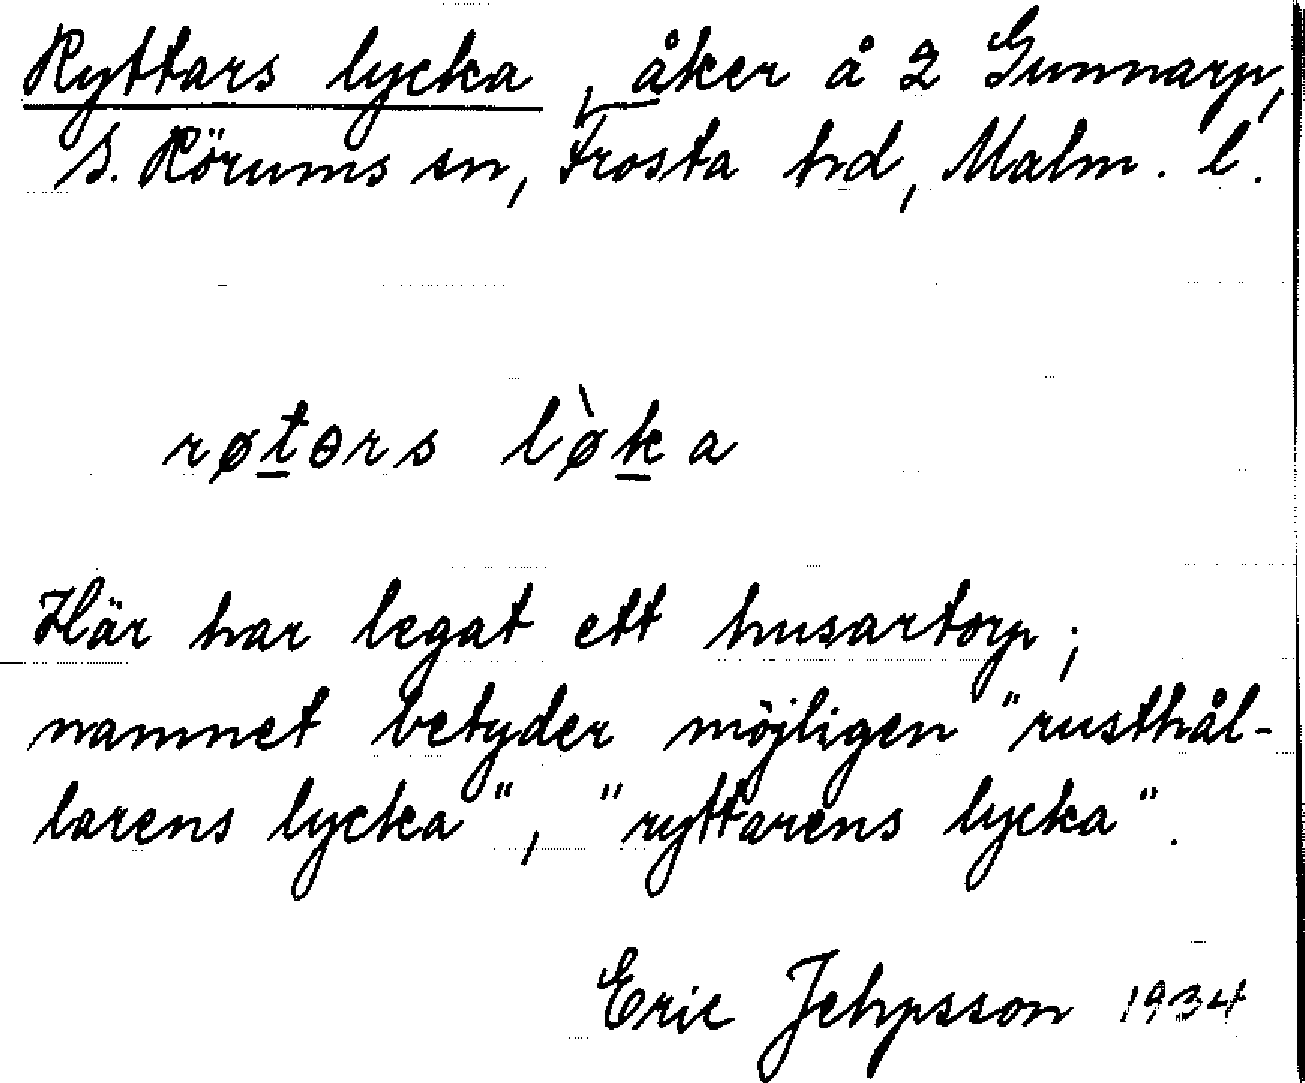 Ryttars lycka, åker å 2 Gunnarp,
S. Rörums sn, Frosta hd, Malm. l.
røtɵrs lø̀ka
Här har legat ett husartorp;
namnet betyder möjligen "rusthål-
larens lycka", "ryttarens lycka".
Eric Jehpsson 1934